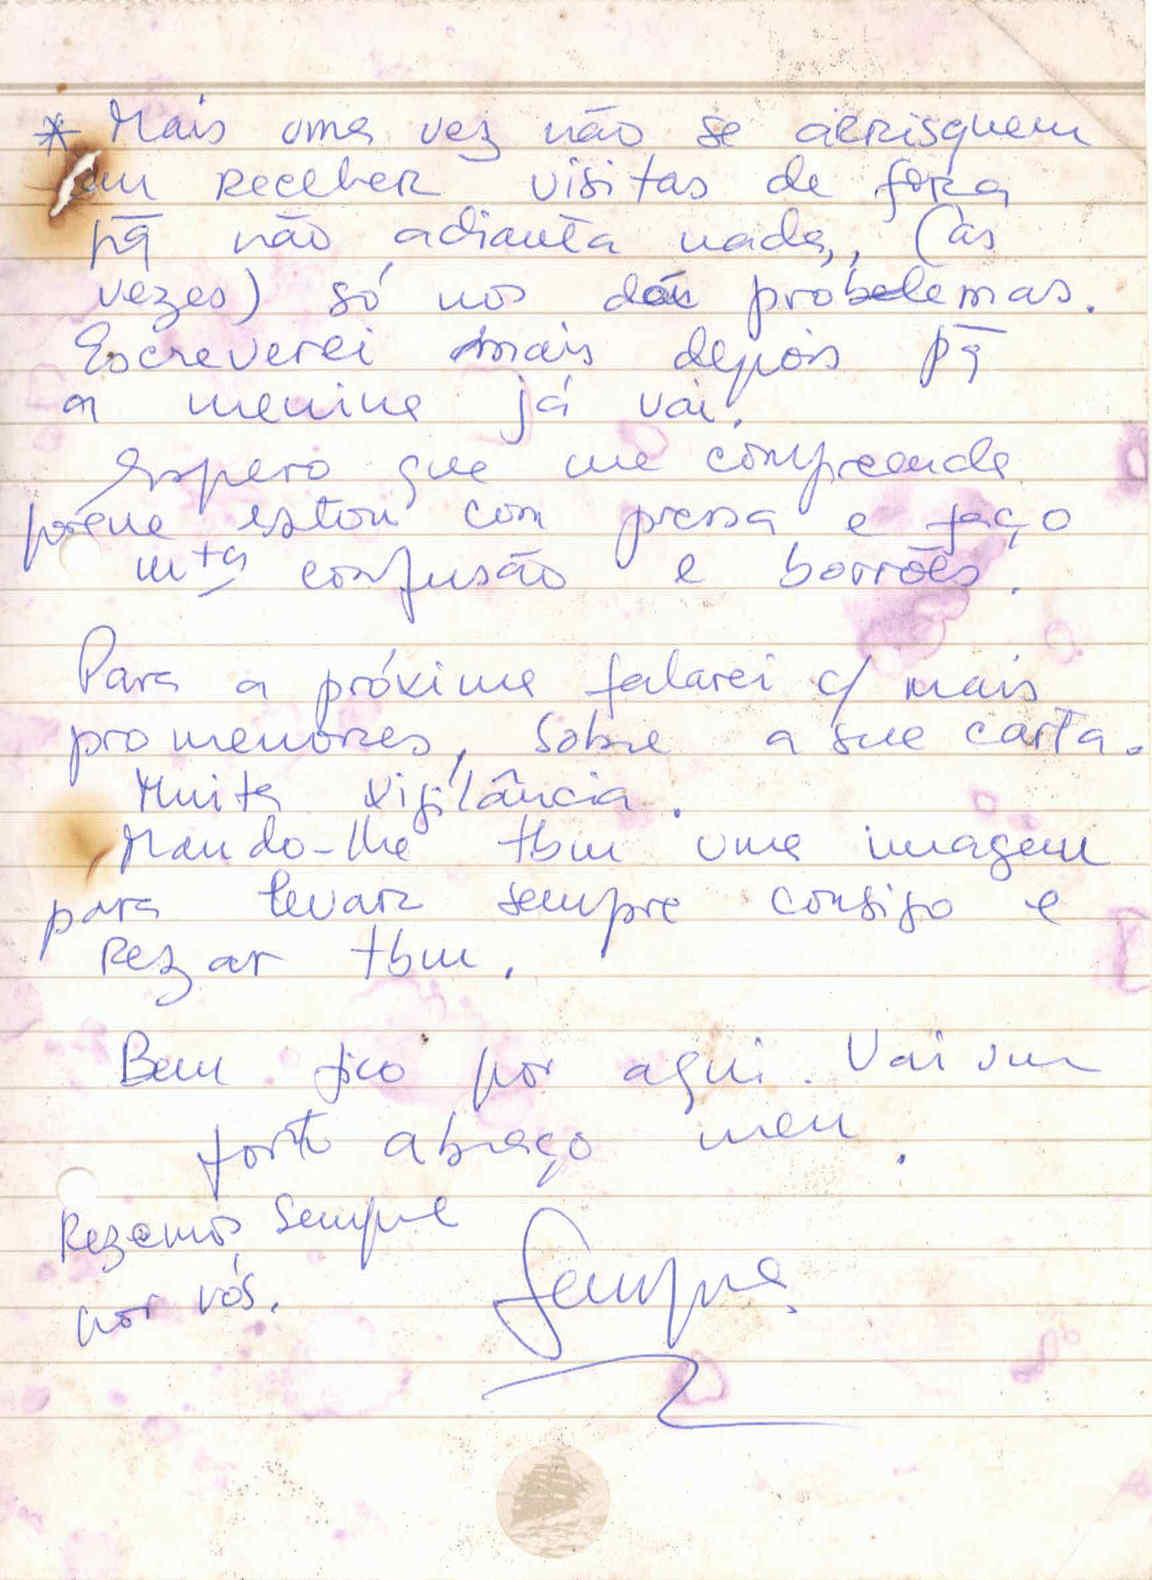 * Mais uma vez não se arrisquem
em receber visitas de fora
pq não adianta nada, (as
vezes) só nos dão probelemas.
Escreverei mais depois pq
a menina já vai.
Espero que me compreenda
porque estou com pressa e faço
mta confusão e borrões.
Para a próxima falarei c/ mais
promenores, sobre a sua carta.
Muita vigilância.
Mando-lhe tbm uma imagem
para levar sempre consigo e
rezar tbm.
Bem fico por aqui. Vai um
forte abraço meu.
Rezamos sempre
por vós.